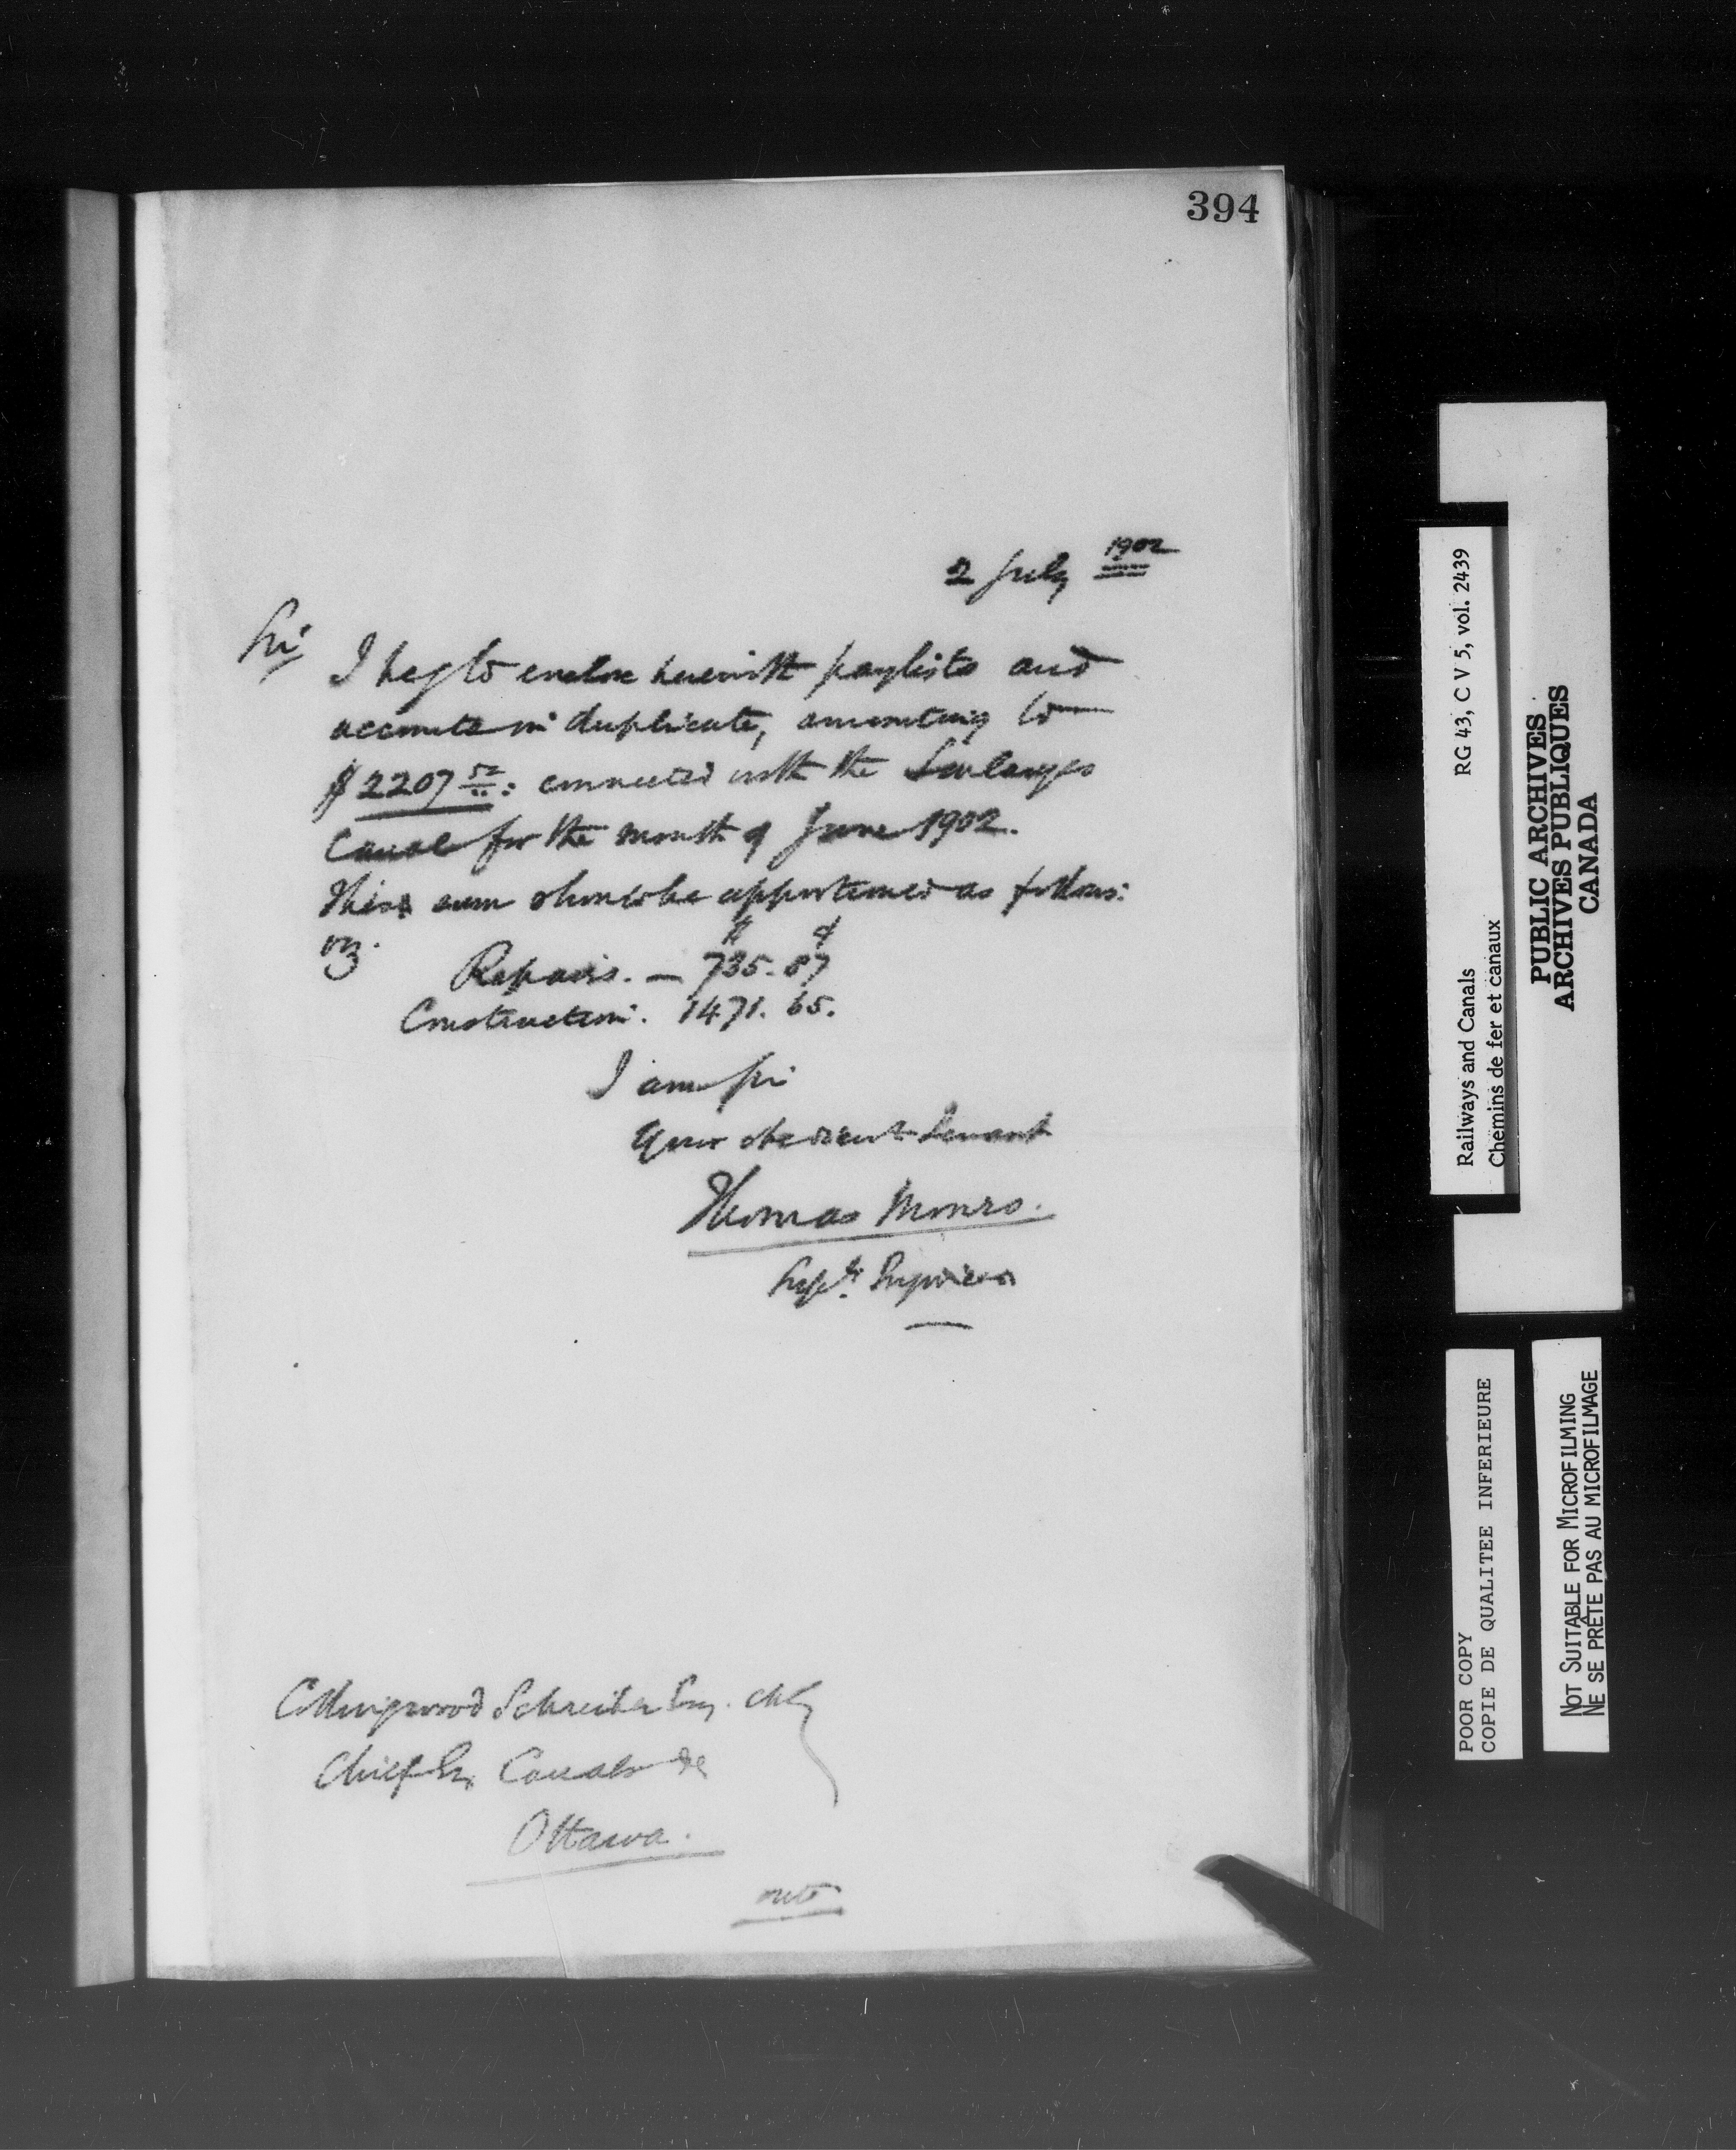 394
2 July 1902
Sir
I beg to enclose herewith paylists and
accounts in duplicate, amounting to
$2207 52: connected with the Soulanges
Canal for the month of June 1902.
This sum should be apportioned as follows:
viz.
$ ¢
Repairs. — 735.87
Construction. 1471.65.
I am Sir
Your obedient Servant
Thomas Monro.
Supt. Engineer
Collingwood Schreiber Esq. CMG
Chief En Canals &c
Ottawa.
RG 43, C V 5, vol. 2439
Railways and Canals
Chemins de fer et canaux
PUBLIC ARCHIVES
ARCHIVES PUBLIQUES
CANADA
POOR COPY
COPIE DE QUALITEE INFERIEURE
NOT SUITABLE FOR MICROFILMING
NE SE PRÊTE PAS AU MICROFILMAGE